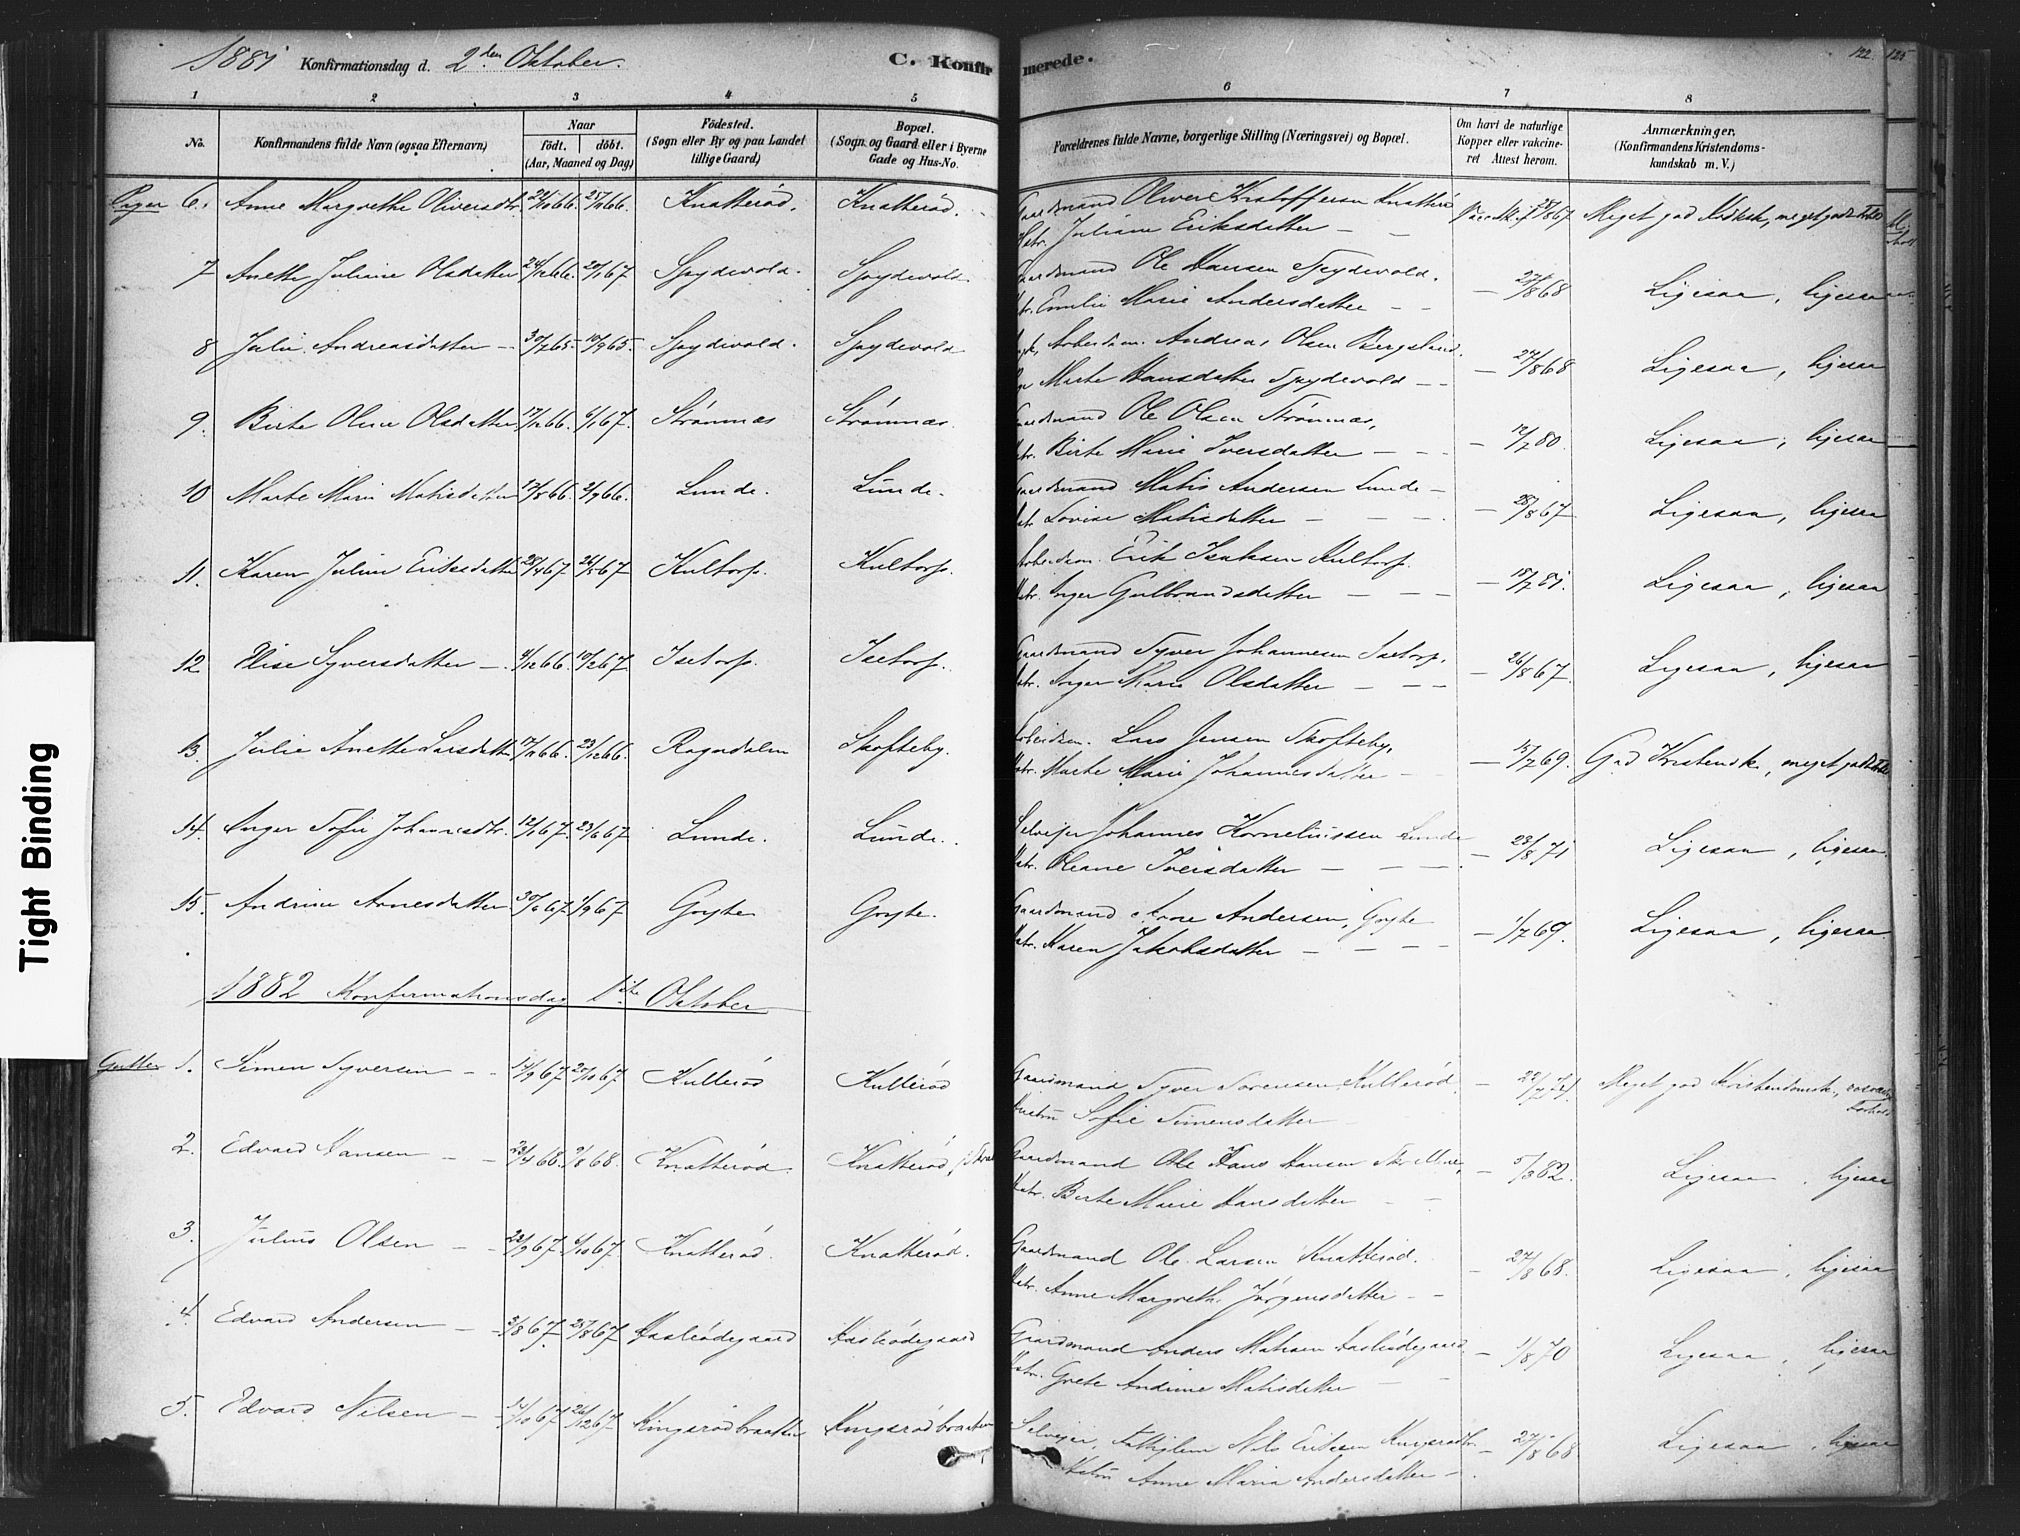 1881 Konfirmationsdag d. 2den Oktober. C. Konfirmerede. 122. 125
1 2 3 4 5 6 7 8
No. Konfirmandens fulde Navn (ogsaa Efternavn) Naar födt. döbt. (Aar, Maaned og Dag) Födested. (Sogn eller By og paa Landet tillige Gaard) Bopæl. (Sogn og Gaard eller i Byerne Gade og Hus-No. Forældrenes fulde Navne, borgerlige Stilling (Næringsvei) og Bopæl. Om havt de naturlige Kopper eller vakcineret Attest herom. Anmærkninger, (Konfirmandens Kristendomskundskab m. V.)
Piger 6. Anne Margrethe Oliversdtr. Knatteröd. Knatteröd. Gaardmand Oliver Kristoffersen
Juliane Eriksdatter — — Meget god
7 Anette Juliane Olsdatter 24/12 66. 20/1 67 Spydevold. Spydevold Gaardmand Ole Hansen Spydevold.
Emilie Marie Andersdatter — — — 27/8 68 Ligesaa, ligesaa
8 Julie Andreasdatter — 30/7 65. 10/9 65. Spydevold. Spydevold Andreas Olsen Bergsland.
Marte Hansdatter Spydevold — — — 27/8 68 Ligesaa, ligesaa
9. Birte Oline Olsdatter 17/12 66. 6/1 67. Strömnæs Strömnæs. Gaardmand Ole Olsen Strömnæs,
Birte Marie Iversdatter — — — 12/7 80. Ligesaa, ligesaa
10 Marte Marie Matisdatter 17/8 66. 2/9 66. Lunde. Lunde. Gaardmand Matis Andersen Lunde —
Lovise Matisdatter — — — — 28/8 67. Ligesaa, ligesaa
11. Karen Juline Eriksdatter 28/4 67. 26/5 67 Kultorp. Kultorp. Erik Isaksen Kultorp.
Inger Gulbrandsdatter — — — — 18/7 81. Ligesaa, ligesaa
12 Elise Syversdatter — 4/12 66. 10/2 67. Isetorp. Isetorp. Gaardmand Syver Johannesen Isetorp,
Inger Marie Olsdatter — — — — 26/8 67. Ligesaa, ligesaa
13. Julie Anette Larsdatter 17/11 66. 23/12 66. Rogndalen Skofteby. Lars Jensen Skofteby,
Marte Marie Johannesdatter — — 15/7 69. God Kristendk., meget godt
14. Inger Sofie Johannesdtr. 12/1 67. 23/6 67 Lunde. Lunde. Selveier Johannes Korneliussen Lunde
Oleane Iversdatter — — — — 23/8 71 Ligesaa, ligesaa.
15. Andrine Arnesdatter 30/6 67. 1/9 67 Grythe Grythe. Gaardmand Arne Andersen, Grythe
Karen Jakobsdatter — — — — 1/7 69. Ligesaa, ligesaa.
1882 Konfirmationsdag 1ste Oktober
Gutter 1. Simen Syversen — — 14/9 67. 20/10 67. Kulleröd Kulleröd Gaardmand Syver Sörensen Kulleröd.
Sofie Simensdatter — Meget god Kristendomsk.,
Forhold
2. Edvard Hansen — — 23/4 68. 9/8 68. Knatteröd. Knatteröd, Gaardmand Ole Hans Hansen
Birte Marie Hansdatter — — — 5/3 82. Ligesaa, ligesaa
3. Julius Olsen — — 22/9 67. 6/10 67. Knatteröd. Knatteröd. Gaardmand Ole Larsen Knatteröd.
Anne Margreth. Jörgensdatter — — — 27/8 68. Ligesaa, ligesaa
4. Edvard Andersen — 2/8 67. 25/8 67 Hasleödegaard Hasleödegaard Gaardmand Anders Matisen Hasleödegaard
Grete Andrine Matisdatter — — 1/8 70 Ligesaa, ligesaa
5. Edvard Nilsen — 14/10 67. 26/12 67. Kingsrödbraatten Kingsrödbraaten Selveier, Nils Eriksen
Anne Maria Andersdatter — — 27/8 68 Ligesaa, ligesaa
Tight Binding